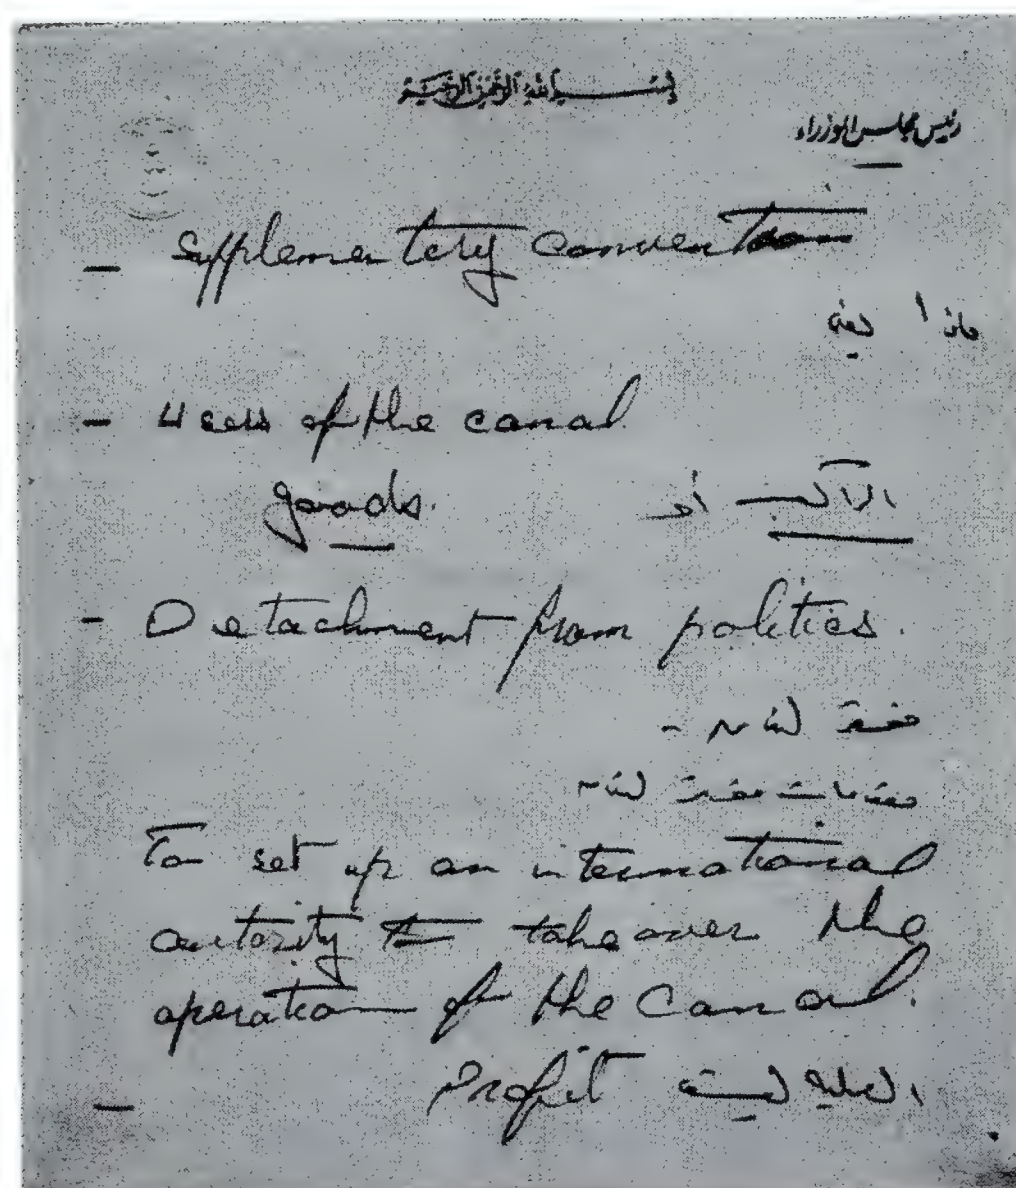 بسم الله الرحمن الرحيم
رئيس مجلس الوزراء
- Supplementary convention
ماذا فيه
- Users of the canal
goods. الراكب أو
- Detachment from politics.
To set up an international
autority to take over the
operation of the Canal.
- العملية ليست Profit